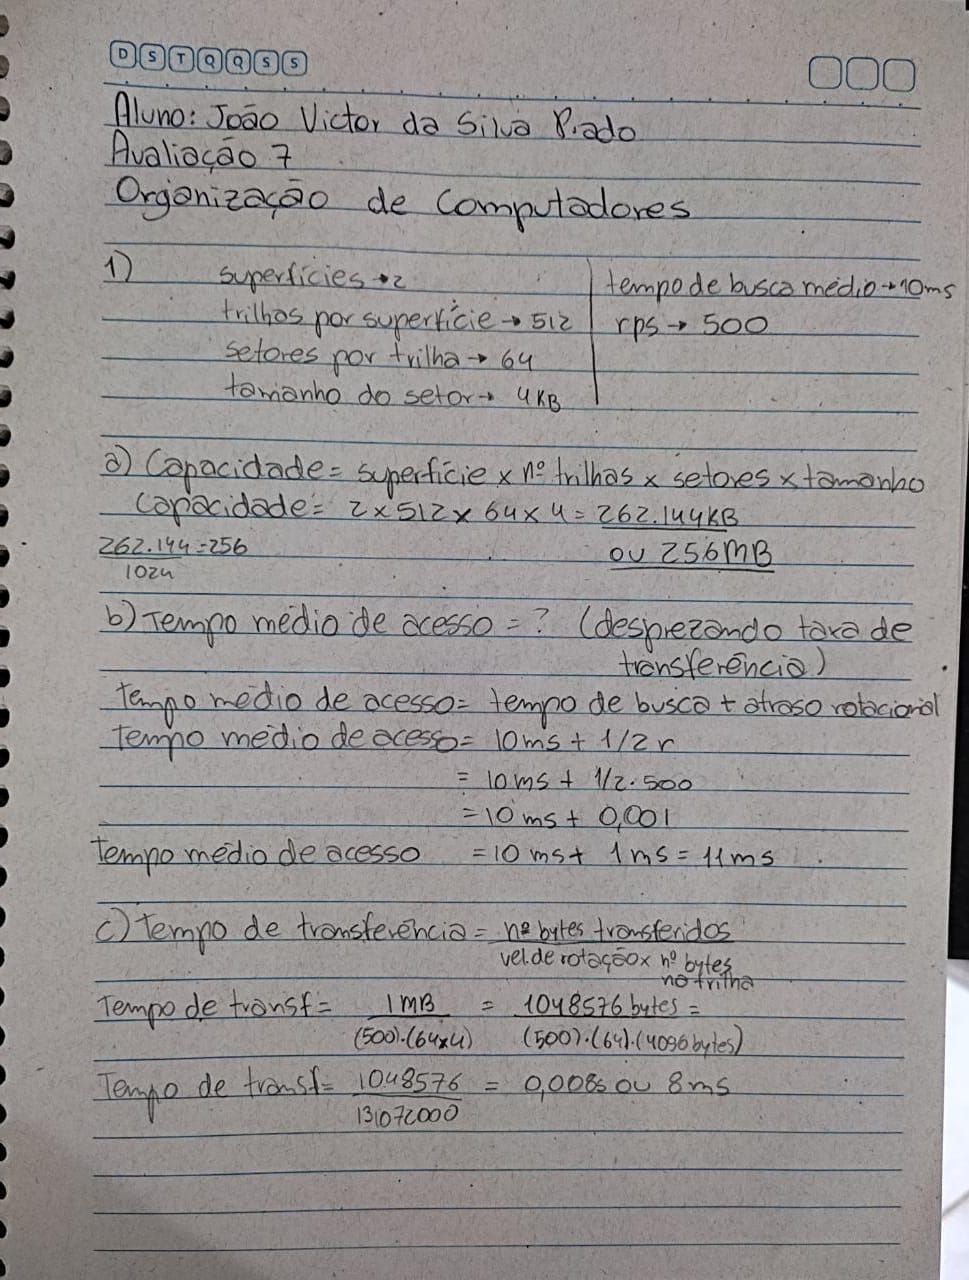 D S T Q Q S S
Aluno: João Victor da Silva Prado
Avaliação 7
Organização de Computadores
1) superfícies → 2
trilhas por superfície → 512
setores por trilha → 64
tamanho do setor → 4KB
tempo de busca médio → 10ms
rps → 500
a) Capacidade = superfície x nº trilhas x setores x tamanho
Capacidade = 2 x 512 x 64 x 4 = 262.144KB
262.144 = 256
1024
ou 256MB
b) Tempo médio de acesso = ? (desprezando taxa de
transferência)
Tempo médio de acesso = tempo de busca + atraso rotacional
Tempo médio de acesso = 10ms + 1/2 r
= 10ms + 1/2.500
= 10 ms + 0,001
Tempo médio de acesso = 10 ms + 1 ms = 11 ms
c) Tempo de transferência = nº bytes transferidos
vel. de rotação x nº bytes
na trilha
Tempo de transf = 1MB = 1048576 bytes =
(500).(64x4) (500).(64).(4096 bytes)
Tempo de transf = 1048576 = 0,008s ou 8ms
131072000